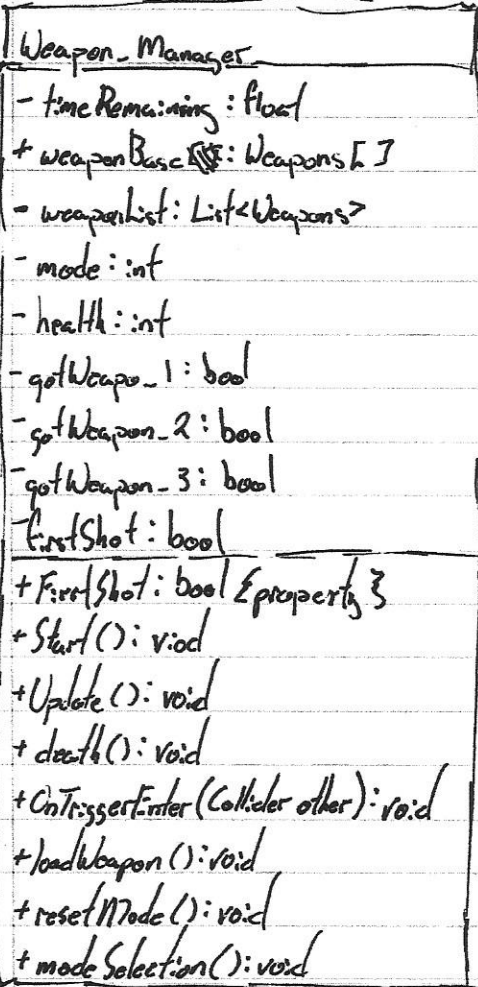 Weapon_Manager
- timeRemaining : float
+ weaponBase : Weapons[ ]
- weaponList : List<Weapons>
- mode : int
- health : int
- gotWeapo_1 : bool
- gotWeapon_2 : bool
- gotWeapon_3 : bool
- firstShot : bool
+ FirstShot : bool {property}
+ Start() : viod
+ Update() : void
+ death() : void
+ OnTriggerEnter(Collider other) : void
+ loadWeapon() : void
+ resetMode() : void
+ modeSelection() : void